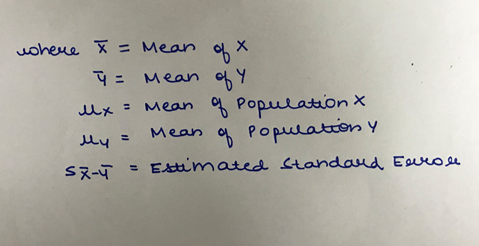 where x̄ = Mean of X
ȳ = Mean of Y
μx = Mean of Population X
μy = Mean of Population Y
Sx̄-ȳ = Estimated Standard Error